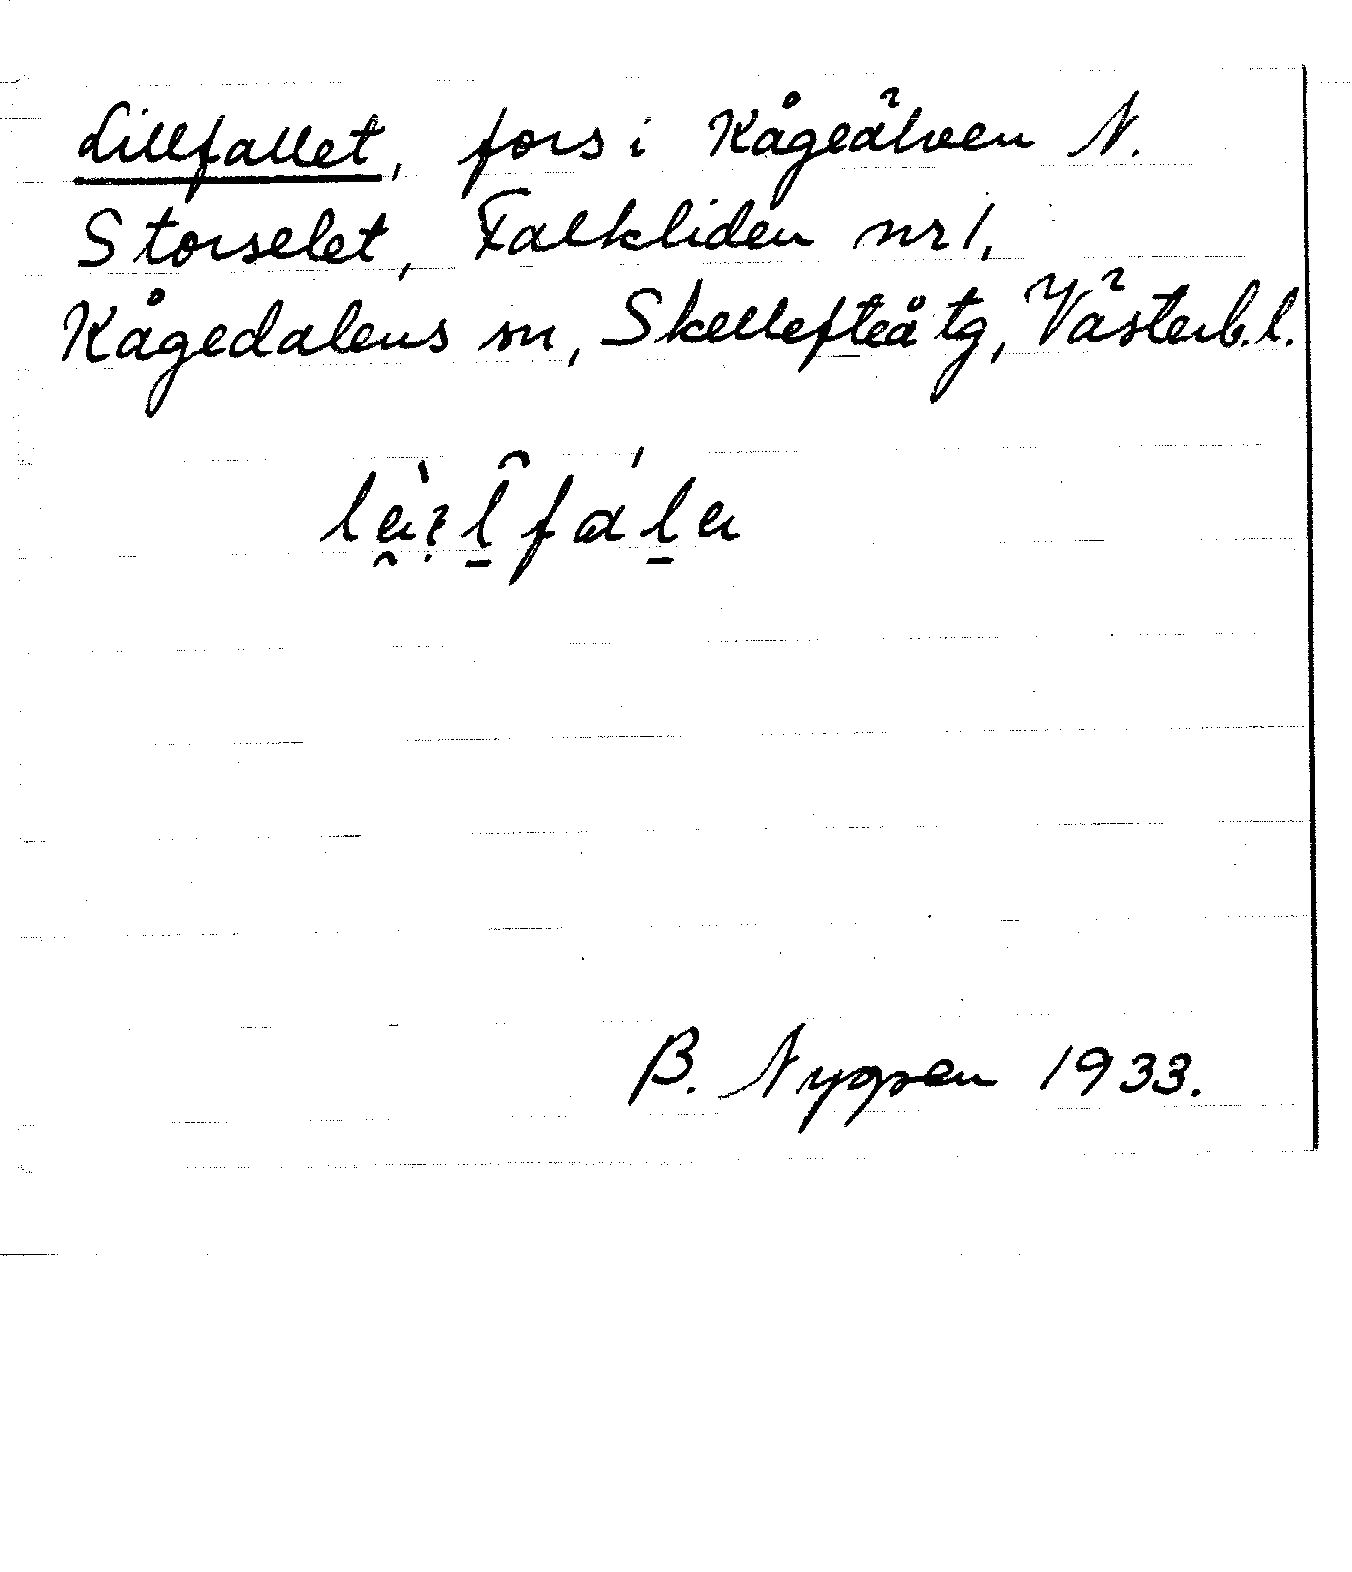 Lillfallet, fors i Kågeälven N.
Storselet, Falkliden nr 1,
Kågedalens sn, Skellefteå tg, Västerb. l.
B. Nygren 1933.